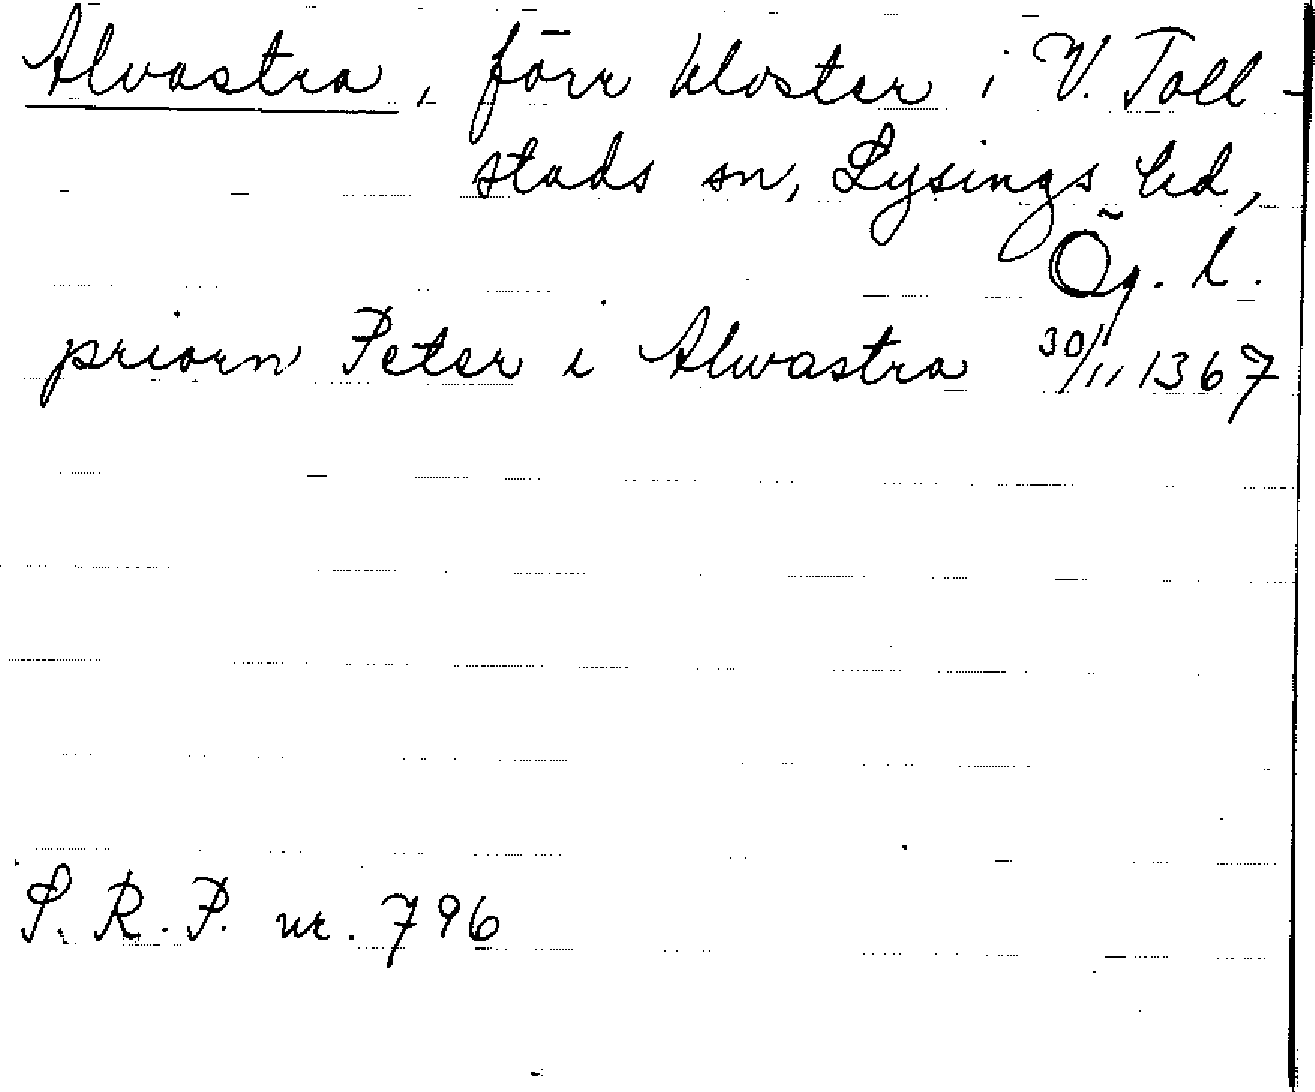 Alvastra, förr kloster i V. Toll-
stads sn, Lysings hd,
Ög. l.
priorn Peter i Alwastra 30/11 1367
S. R. P. nr. 796